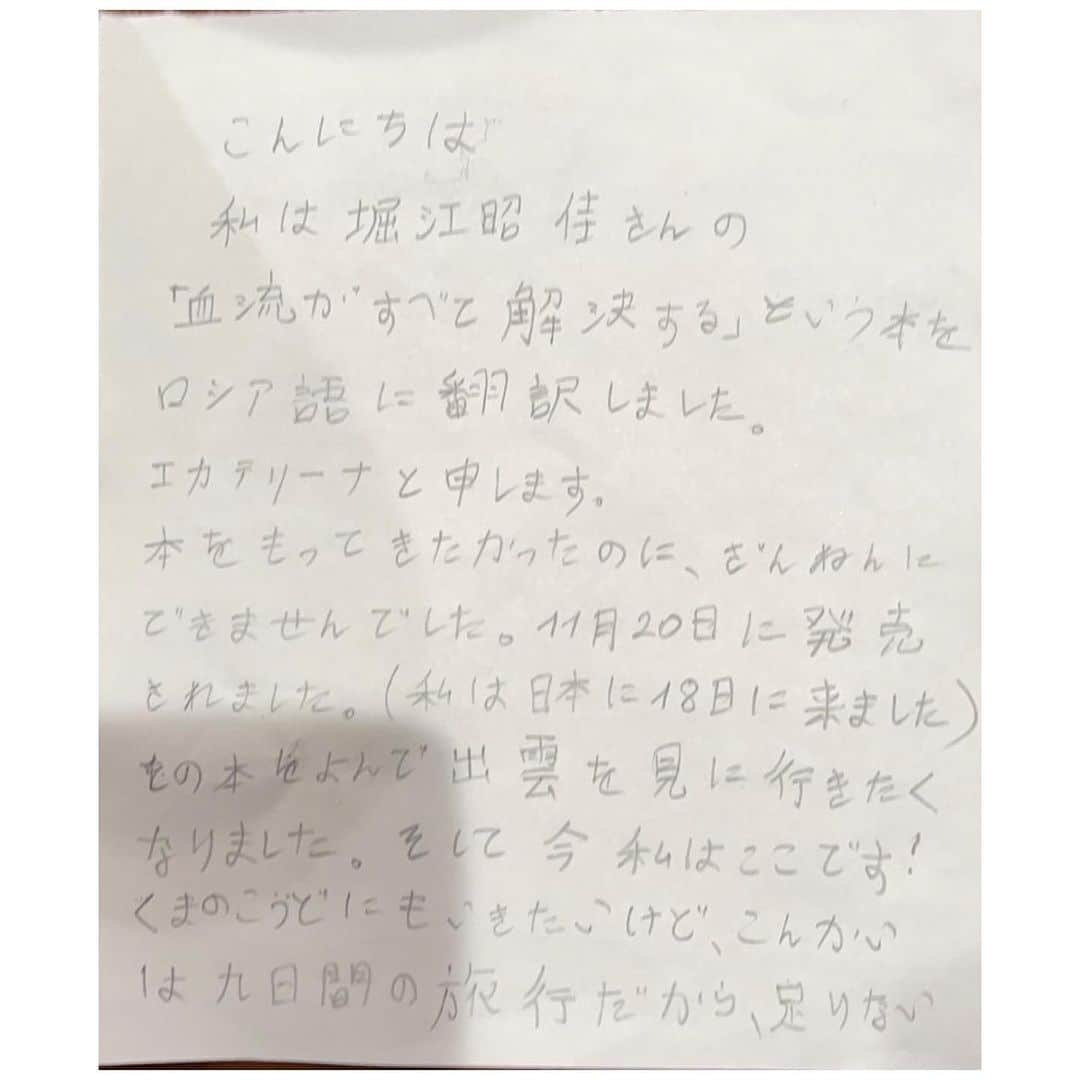 こんにちは
私は堀江昭佳さんの
「血流がすべて解決する」という本を
ロシア語に翻訳しました。
エカテリーナと申します。
本をもってきたかったのに、ざんねんに
できませんでした。11月20日に発売
されました。(私は日本に18日に来ました)
その本をよんで出雲を見に行きたく
なりました。そして今私はここです!
くまのこうどにもいきたいけど、こんかい
は九日間の旅行だから、足りない